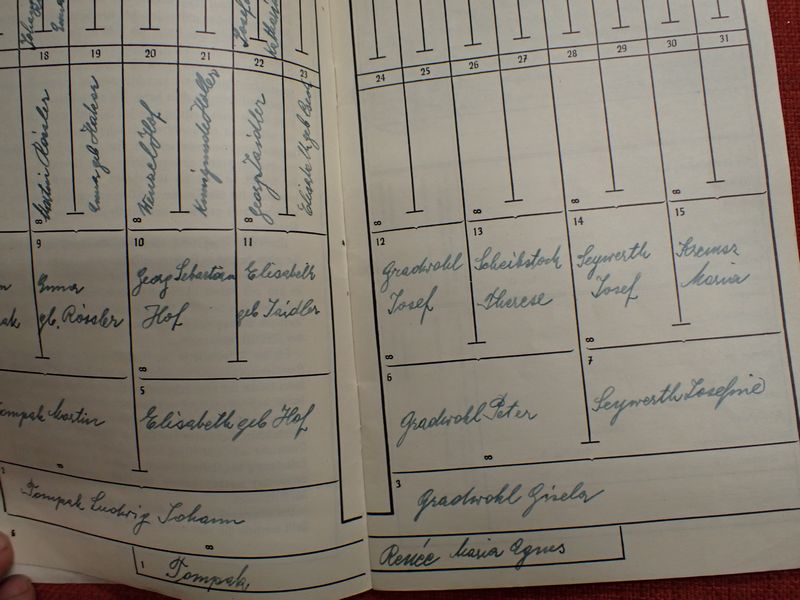 18 19 20 21 22 23
24 25 26 27 28 29 30 31
Martin Rössler
Wenzel Hof
Kunigunde Höller
Georg Zaidler
8 8 8
8 8 8
9 10 11
12 13 14 15
Anna
geb. Rössler
Georg Sebastian
Hof
Elisabeth
geb Zaidler
Gradwohl
Josef
Scheibstock
Therese
Seywerth
Josef
Kremsz
Maria
8
8 8
5
6 7
Tompak Martin
Elisabeth geb Hof
Gradwohl Peter
Seywerth Josefine
2
3
Tompak Ludwig Johann
Gradwohl Gisela
1 Tompak
Renée Maria Agnes